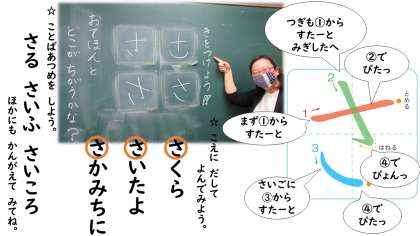 きをつけよう！！
さ
さ
さ
さ
おてほんと
どこが ちがうかな？
☆ こえに だして
よんでみよう。
さくら
さいたよ
さかみちに
☆ ことばあつめを しよう。
さる さいふ さいころ
ほかにも かんがえて みてね。
つぎも①から
すたーと
みぎしたへ
②で
ぴたっ
まず①から
すたーと
④で
ぴょんっ
さいごに
③から
すたーと
④で
ぴたっ
1
2
3
とめる
はねる